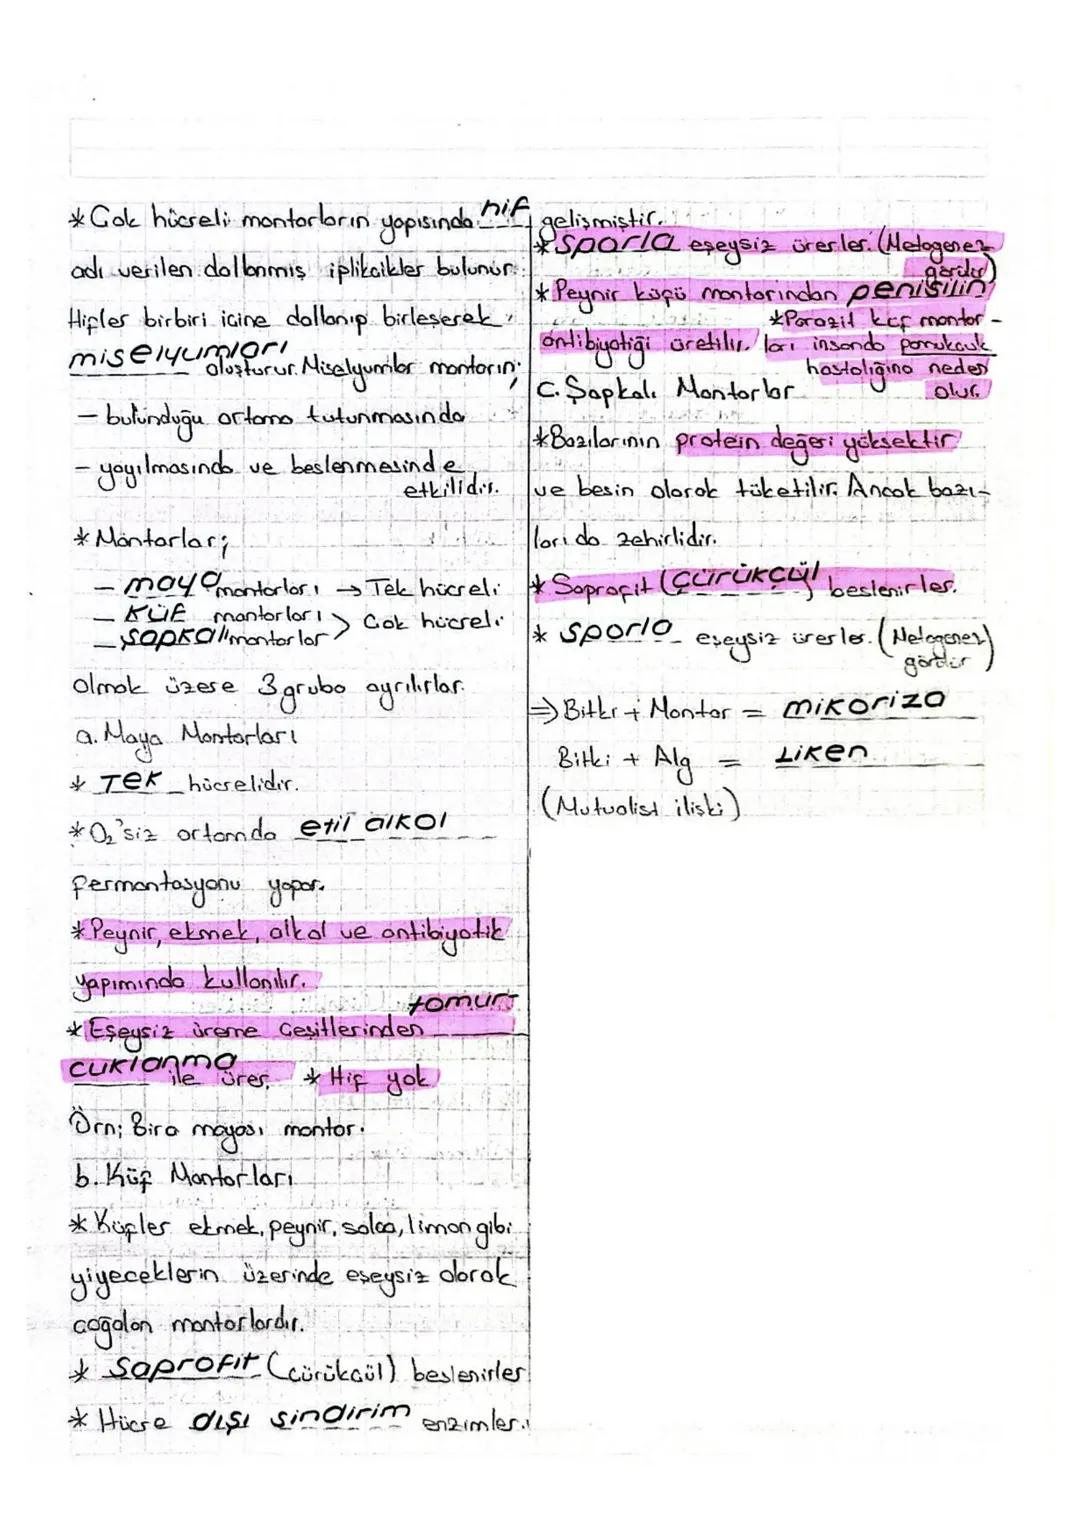 * Çok hücreli mantarların yapısında hif
adı verilen dallanmış iplikcikler bulunur.
Hifler birbiri içine dallanıp birleşerek
miselyumları oluşturur. Miselyumlar mantarın;
- bulunduğu ortama tutunmasında
- yayılmasında ve beslenmesinde
etkilidir.
* Mantarlar;
- maya mantarları → Tek hücreli
- Küf mantarları > Çok hücreli
- şapkalı mantarlar
Olmak üzere 3 gruba ayrılırlar.
a. Maya Mantarları
* Tek hücrelidir.
* O₂'siz ortamda etil alkol
fermantasyonu yapar.
* Peynir, ekmek, alkol ve antibiyotik
yapımında kullanılır.
* Eşeysiz üreme çeşitlerinden tomur-
cuklanma ile ürer. * Hif yok
Örn; Bira mayası mantar.
b. Küf Mantarları
* Küfler ekmek, peynir, salça, limon gibi
yiyeceklerin üzerinde eşeysiz olarak
çoğalan mantarlardır.
* Saprofit (çürükçül) beslenirler
* Hücre dışı sindirim enzimleri
gelişmiştir.
* Sporla eşeysiz ürerler. (Metagenez
görülür)
* Peynir küfü mantarından penisilin
antibiyotiği üretilir.
* Parazit küf mantar-
ları insanda pamukcuk
hastalığına neden
olur.
C. Şapkalı Mantarlar
* Bazılarının protein değeri yüksektir
ve besin olarak tüketilir. Ancak bazı-
ları da zehirlidir.
* Saprofit (çürükçül) beslenirler.
* Sporla eşeysiz ürerler. (Metagenez)
görülür
⇒ Bitki + Mantar = mikoriza
Bitki + Alg = Liken
(Mutualist ilişki)